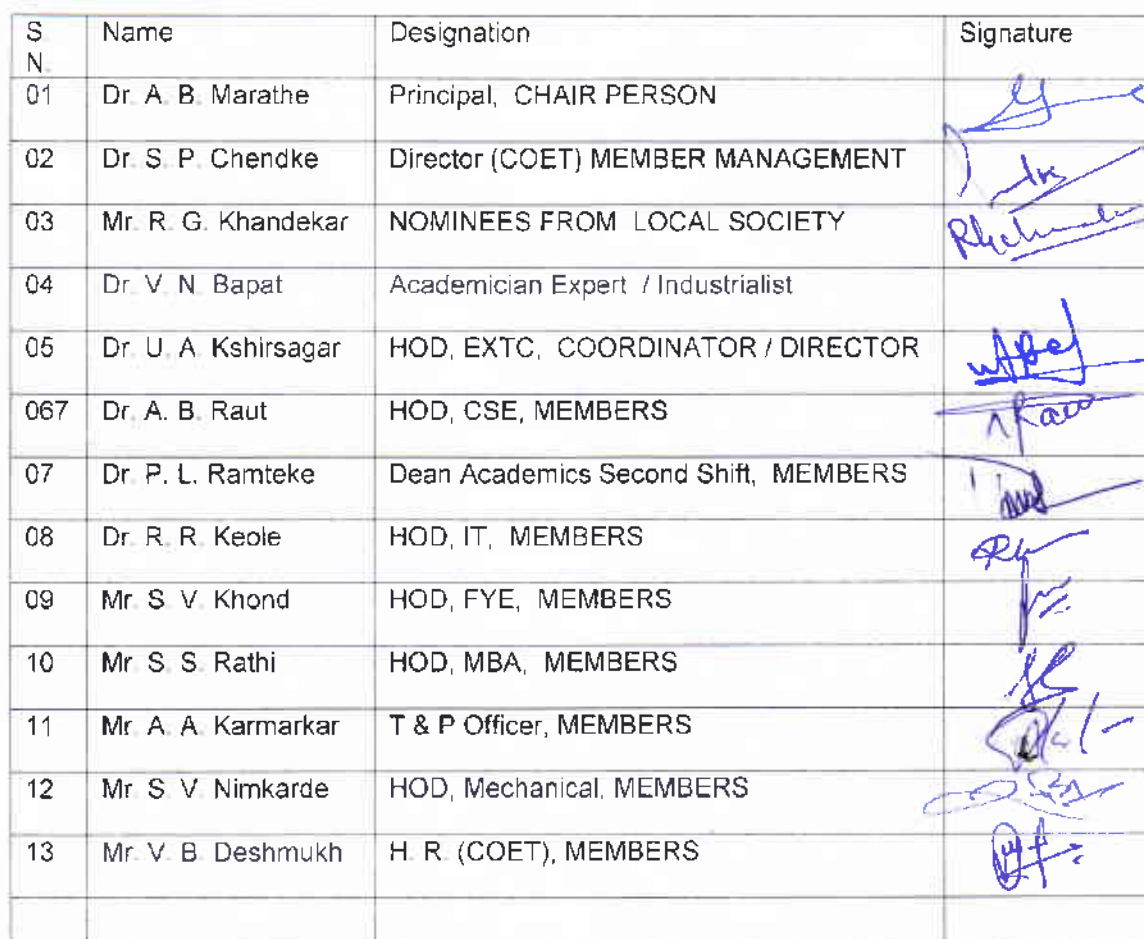 S. Name Designation Signature
N.
01 Dr. A. B. Marathe Principal, CHAIR PERSON
02 Dr. S. P. Chendke Director (COET) MEMBER MANAGEMENT
03 Mr. R. G. Khandekar NOMINEES FROM LOCAL SOCIETY
04 Dr. V. N. Bapat Academician Expert / Industrialist
05 Dr. U. A. Kshirsagar HOD, EXTC, COORDINATOR / DIRECTOR
067 Dr. A. B. Raut HOD, CSE, MEMBERS
07 Dr. P. L. Ramteke Dean Academics Second Shift, MEMBERS
08 Dr. R. R. Keole HOD, IT, MEMBERS
09 Mr. S. V. Khond HOD, FYE, MEMBERS
10 Mr. S. S. Rathi HOD, MBA, MEMBERS
11 Mr. A. A. Karmarkar T & P Officer, MEMBERS
12 Mr. S. V. Nimkarde HOD, Mechanical, MEMBERS
13 Mr. V. B. Deshmukh H. R. (COET), MEMBERS